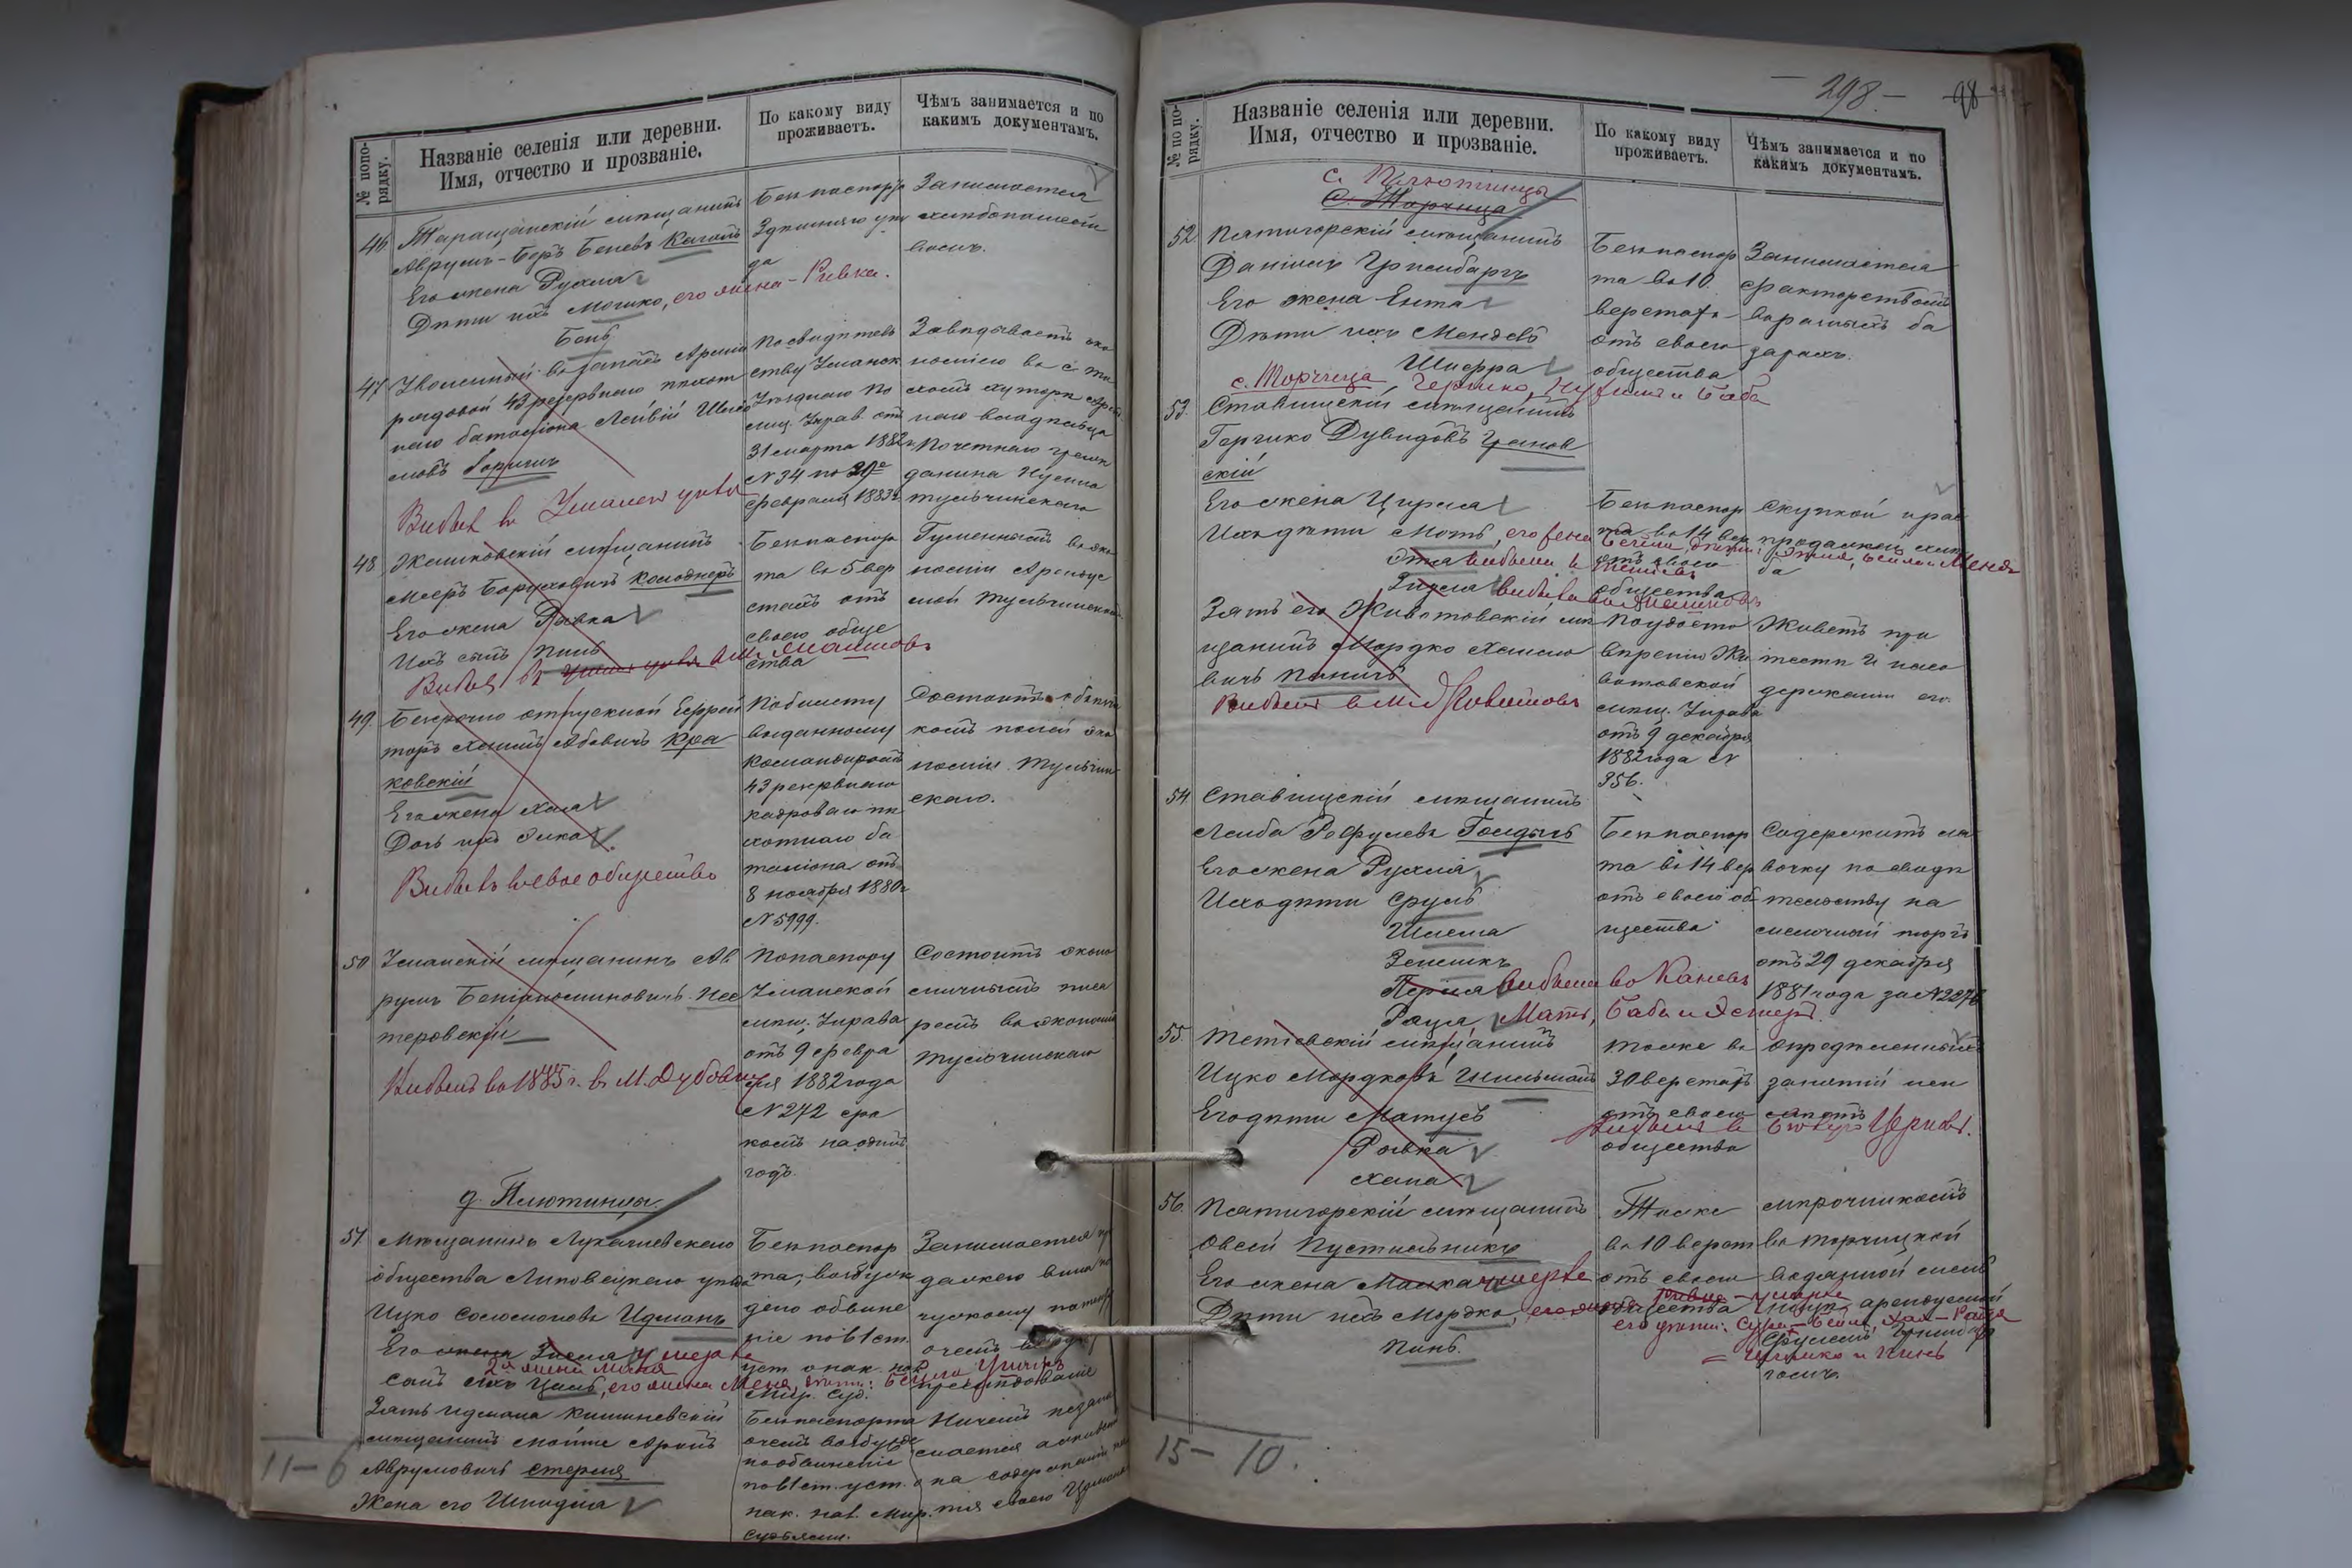 № попо-
рядку.
Названіе селенія или деревни.
Имя, отчество и прозваніе.
По какому виду
проживаетъ.
Чѣмъ занимается и по
какимъ документамъ.
46
Таращанскій мѣщанинъ
Аврумъ-Беръ Беневъ Каганъ
Его жена Рухля
Дѣти ихъ Мошко, его жена - Ривка.
Бенъ
Безъ паспорта
Здѣшняго уѣз
да
Занимается
хлѣбопашест
вомъ.
47
Уволенный въ запасъ Арміи
рядовой 43 резервнаго пѣхот
наго баталіона Лейвій
Выбылъ въ Уманск уѣздъ
По свидѣтель
ству Уманск
Уѣзднаго По
лиц. Управ. отъ
31 марта 1882 г
№ 34 по 20е
февраля 1883 г.
Завѣдываетъ эко
номіею въ с Ти
наго владѣльца
Почетнаго граж
данина Нусина
Тульчинскаго
48
Жашковскій мѣщанинъ
Мееръ Боруховичъ Колоднеръ
Его жена Ривка
Ихъ сынъ Пинъ
Выбылъ въ м. Жашковъ
Безъ паспор
та въ 5 вер
стахъ отъ
своего обще
ства
Гуменнымъ въ эко
номіи Арендуе
мой Тульчинскимъ
49.
Безсрочно отпускной Ефрей
торъ Хаимъ Абовичъ Кра
ковскій
Его жена Хая
Дочь ихъ Эйка
Выбылъ въ свое общество
По билету
выданному
командиромъ
43 резервнаго
кадроваго пѣ
хотнаго ба
таліона отъ
8 ноября 1880 г
№ 5999.
Состоитъ объѣзд
комъ полей эко
номіи Тульчин
скаго.
50
Уманскій мѣщанинъ Ав
румъ Беніаминовичъ Нес
теровскій
Выбылъ въ 1885 г. въ М. Дубову
По паспорту
Уманской
мѣщ. Управы
отъ 9 февра
ля 1882 года
№ 272 сро
комъ на одинъ
годъ.
Состоитъ эконо
мичнымъ писа
ремъ въ экономіи
Тульчинскаго
д. Плютинцы.
51.
Мѣщанинъ Лукашевскаго
общества Липовецкаго уѣзда
Ицко Соломоновъ Идманъ
Его жена Злата умерла
2я жена Маня
сынъ ихъ Цаль, его жена Меня, дѣти:
Зять Идмана Кишиневскій
мѣщанинъ Мойше Аронъ
Аврумовичъ Стерня
Жена его Шпидля
Безъ паспор
та, возбуж
дено обвине
ніе по 81 ст.
уст о нак. нал
Мир. Суд.
Безъ паспорта
о чемъ возбужде
но обвиненіе
по 81 ст. уст. о
нак. нал. Мир.
Судьями.
Занимается пр
дажею вина по
о чемъ
преслѣдованіе
Ничемъ незани
мается а живетъ
на содержаніи
тестя своего Идмана
- 298. - 98
№ по по-
рядку.
Названіе селенія или деревни.
Имя, отчество и прозваніе.
По какому виду
проживаетъ.
Чѣмъ занимается и по
какимъ документамъ.
с. Плютинцы
С. Торчица
52
Пятигорскій мѣщанинъ
Даніилъ Гринбаргъ
Его жена Ента
Дѣти ихъ Мендель
Шифра
Безъ паспор
та въ 10
верстахъ
отъ своего
общества
Занимается
факторствомъ
въ разныхъ ба
зарахъ.
с. Торчица Гершко, Нухимъ и Баба
53.
Ставищскій мѣщанинъ
Гершко Дувидовъ Гранов
скій
Его жена Цирля
Ихъ дѣти Моть, его жена Бейла, дѣти: Этля, Бейла и Меня
Эта выбыла в Кіевъ
Зисля выбыла въ Жашковъ
Безъ паспор
та въ 14 вер
отъ своего
общества
Скупкой и рас
продажей хлѣ
ба
Зять его Животовскій мѣ
щанинъ Мордко Хаимо
вичъ Паничъ
Выбылъ въ м. Животовъ
По удосто
вѣренію Жи
вотовской
мѣщ. Управы
отъ 9 декабря
1882 года №
356.
Живетъ при
тестѣ и на со
держаніи его.
54
Ставищскій мѣщанинъ
Лейба Рефулевъ Голдинъ
Его жена Рухля
Ихъ дѣти Сруль
Шлема
Зельманъ
Перля выбыла во Каневъ
Рахля, Мать, Баба и Эстеръ.
Безъ паспор
та въ 14 вер
отъ своего об
щества
Содержитъ ла
вочку по свидѣ
тельству на
мелочный торгъ
отъ 29 декабря
1881 года за № 2276
55.
Тетіевскій мѣщанинъ
Ицко Мордковъ Шпильманъ
Его дѣти Матусъ
Ривка
Хана
Также въ
30 верстахъ
отъ своего
общества
Опредѣленныхъ
занятій неи
мѣетъ
Выбылъ в Бѣлую Церковь.
56.
Пятигорскій мѣщанинъ
Овсей Пустильникъ
Его жена Малка умерла
Дѣти ихъ Мордко, его жена Ривка - умерла
его дѣти: Сура - Бейла, Хая - Рахля
= Гершко и Пинь
Пинь.
Также
въ 10 верст
отъ своего
общества
мѣрочникомъ
въ Торчицкой
водяной мель
ницѣ арендуемой
Срулемъ Гринбар
гомъ.
11-6
15-10.